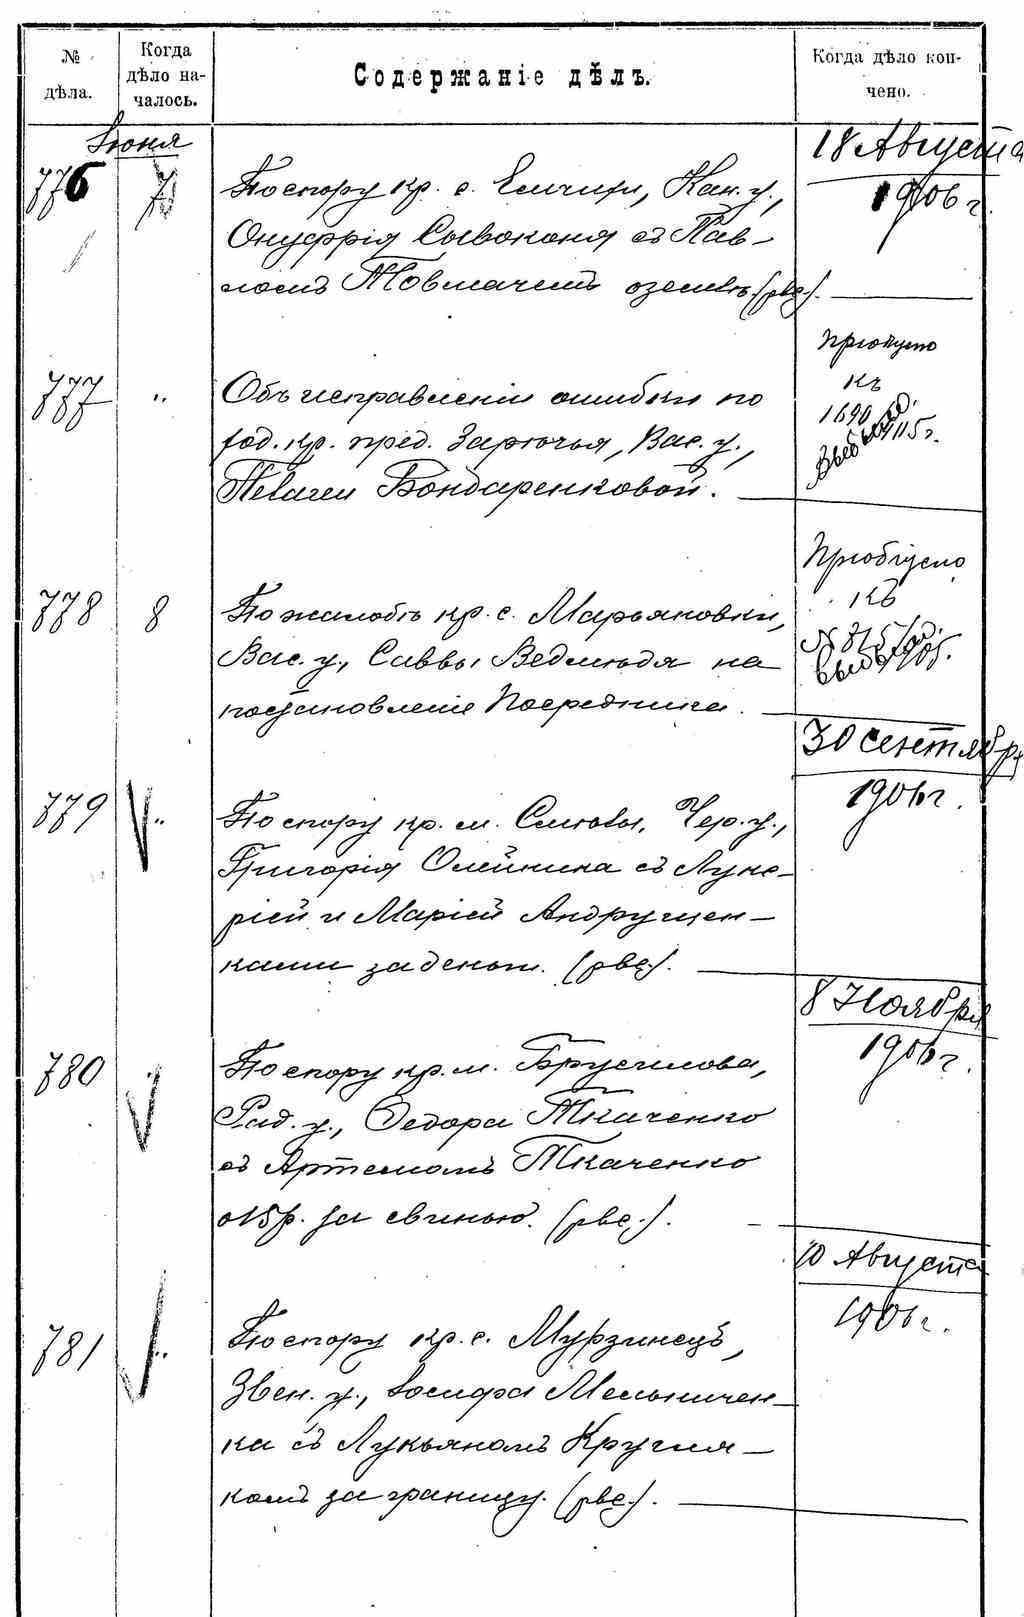 № дѣла.
Когда дѣло началось.
Содержаніе дѣлъ.
Когда дѣло кончено.
Іюня
776
7
По спору кр. с. Емчихи, Кан. у.,
Онуфрія Сывоконя съ Пав-
ломъ Товмачемъ о землѣ. (рве.).
18 Августа
1906 г.
777
"
Объ исправленіи ошибки по
кр. пред. Зарѣчья, Вас. у.,
Пелагеи Бондаренковой.
къ
1690
778
8
По жалобѣ кр. с. Марьяновки,
Вас. у., Саввы Ведмедя на
постановленіе Посредника.
къ
№ 815
779
"
По спору кр. м. Смѣлы, Чер. у.,
Григорія Олейника съ Луке-
ріей и Маріей Андрущен-
ками за деньги. (рве.).
30 Сентября
1906 г.
780
По спору кр. м. Брусилова,
Рад. у., Ѳедора Ткаченко
съ Артемомъ Ткаченко
о 15 р. за свинью. (рве.).
8 Ноября
1906 г.
781
"
По спору кр. с. Мурзинецъ,
Звен. у., Іосифа Мельничен-
ка съ Лукьяномъ Кругля-
комъ за границу. (рве.).
10 Августа
1906 г.